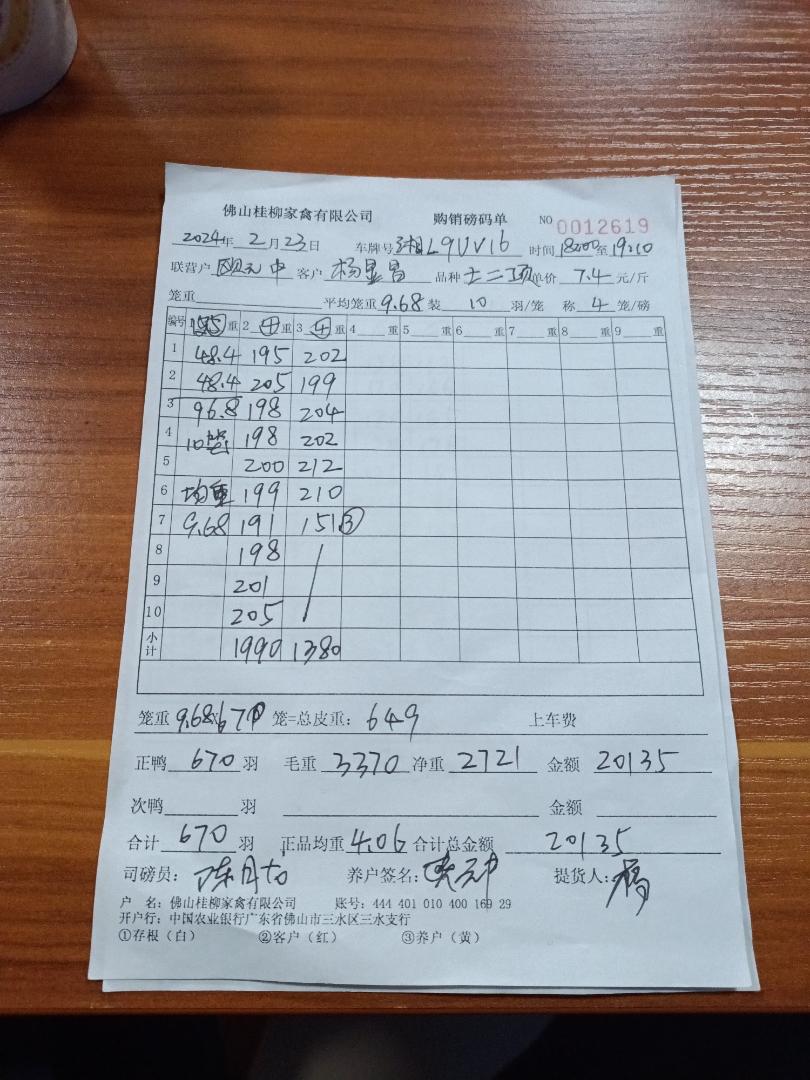 佛山桂柳家禽有限公司 购销磅码单 NO 0012619
2024年 2月 23日 车牌号 湘L9UV16 时间 18:00至19:10
联营户 欧元中 客户 杨显昌 品种 士二项 单价 7.4 元/斤
笼重 平均笼重 9.68 装 10 羽/笼 称 4 笼/磅
编号 重 2 ④ 重 3 ④ 重 4 重 5 重 6 重 7 重 8 重 9 重
1 48.4 195 202
2 48.4 205 199
3 96.8 198 204
4 10笼 198 202
5 200 212
6 均重 199 210
7 9.68 191 151 ③
8 198
9 201
10 205
小计 1990 1380
笼重 9.68×67 笼=总皮重: 649 上车费
正鸭 670 羽 毛重 3370 净重 2721 金额 20135
次鸭 羽 金额
合计 670 羽 正品均重 4.06 合计总金额 20135
司磅员: 养户签名: 提货人: 杨
户 名: 佛山桂柳家禽有限公司 账号: 444 401 010 400 169 29
开户行: 中国农业银行广东省佛山市三水区三水支行
①存根(白) ②客户(红) ③养户(黄)